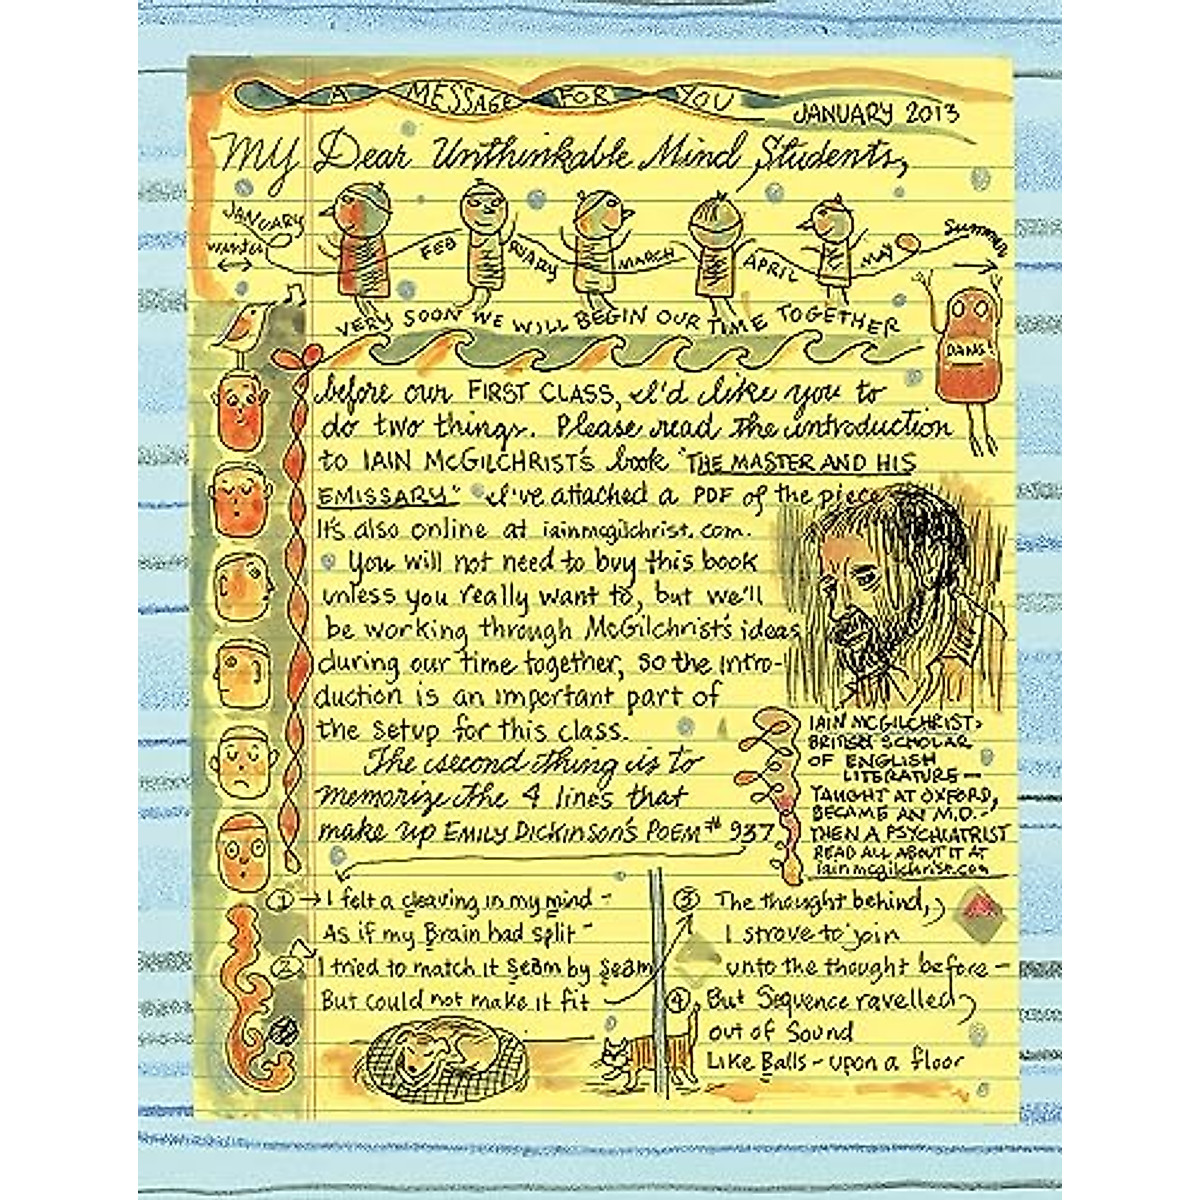 A MESSAGE FOR YOU
JANUARY 2013
My Dear Unthinkable Mind Students,
JANUARY FEBRUARY MARCH APRIL MAY Summer
winter
VERY SOON WE WILL BEGIN OUR TIME TOGETHER
DANG!
before our FIRST CLASS, I'd like you to
do two things. Please read the introduction
to IAIN McGILCHRIST'S book "THE MASTER AND HIS
EMISSARY" I've attached a PDF of the piece
It's also online at iainmcgilchrist.com.
You will not need to buy this book
unless you really want to, but we'll
be working through McGilchrist's ideas
during our time together, so the intro-
duction is an important part of
the setup for this class.
The second thing is to
memorize the 4 lines that
make up EMILY DICKINSON'S POEM # 937
IAIN MCGILCHRIST:
BRITISH SCHOLAR
OF ENGLISH
LITERATURE—
TAUGHT AT OXFORD,
BECAME AN M.D.-
THEN A PSYCHIATRIST
READ ALL ABOUT IT AT
iainmcgilchrist.com
1 → I felt a cleaving in my mind -
As if my Brain had split -
2 I tried to match it Seam by Seam
But could not make it fit
3 The thought behind,
I strove to join
unto the thought before —
4 But Sequence ravelled
out of Sound
Like Balls - upon a floor